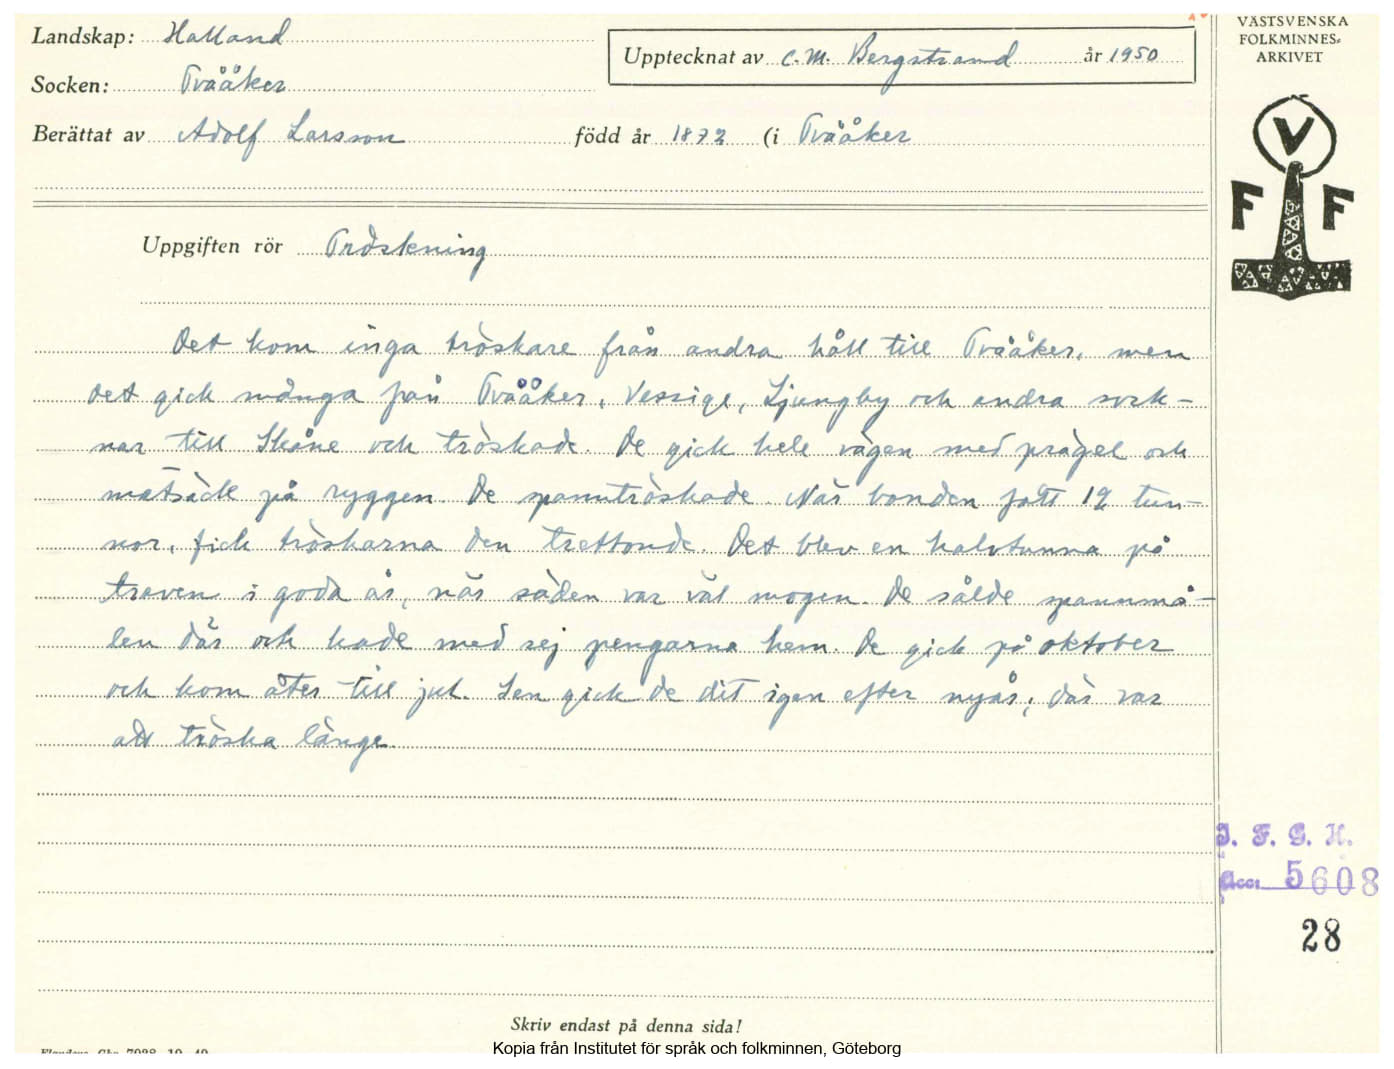 Landskap: Halland
Socken: Tvååker
Upptecknat av C. M. Bergstrand år 1950
Berättat av Adolf Larsson född år 1872 (i Tvååker
VÄSTSVENSKA
FOLKMINNES-
ARKIVET
V
F F
Uppgiften rör Tröskning
Det kom inga tröskare från andra håll till Tvååker, men
det gick många från Tvååker, Vessige, Ljungby och andra sock-
nar till Skåne och tröskade. De gick hela vägen med prägel och
matsäck på ryggen. De spanntröskade. När bonden fått 12 tun-
nor, fick tröskarna den trettonde. Det blev en halvtunna på
traven i goda år, när säden var väl mogen. De sålde spannmå-
len där och hade med sej pengarna hem. De gick på oktober
och kom åter till jul. Sen gick de dit igen efter nyår; där var
att tröska länge.
I. F. G. H.
Acc: 5608
28
Skriv endast på denna sida!
Kopia från Institutet för språk och folkminnen, Göteborg